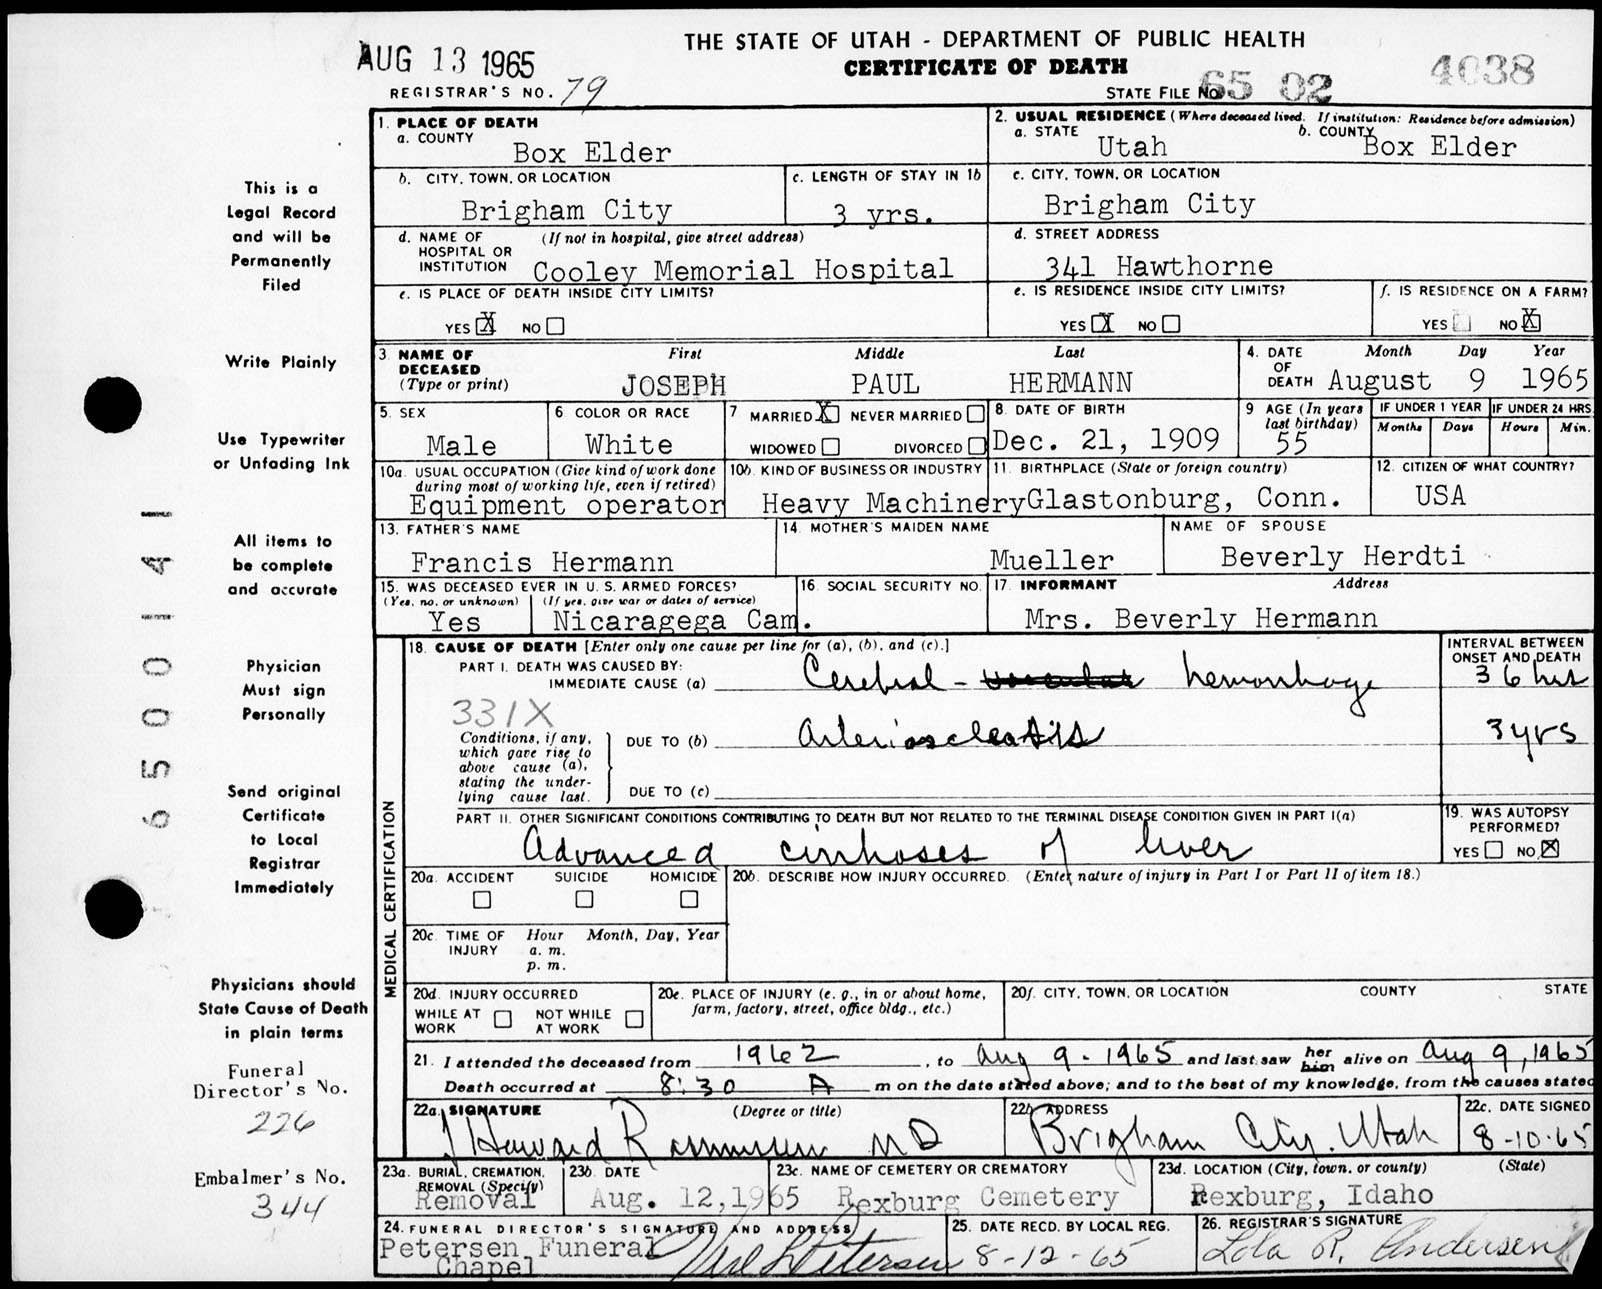 THE STATE OF UTAH - DEPARTMENT OF PUBLIC HEALTH
CERTIFICATE OF DEATH
AUG 13 1965
REGISTRAR'S NO. 79
STATE FILE No. 65 02 4038
1. PLACE OF DEATH
a. COUNTY
Box Elder
2. USUAL RESIDENCE (Where deceased lived. If institution: Residence before admission)
a. STATE b. COUNTY
Utah Box Elder
b. CITY, TOWN, OR LOCATION
Brigham City
c. LENGTH OF STAY IN 1b
3 yrs.
c. CITY, TOWN, OR LOCATION
Brigham City
d. NAME OF HOSPITAL OR INSTITUTION (If not in hospital, give street address)
Cooley Memorial Hospital
d. STREET ADDRESS
341 Hawthorne
e. IS PLACE OF DEATH INSIDE CITY LIMITS?
YES X NO
e. IS RESIDENCE INSIDE CITY LIMITS?
YES X NO
f. IS RESIDENCE ON A FARM?
YES NO X
3. NAME OF DECEASED (Type or print)
First Middle Last
JOSEPH PAUL HERMANN
4. DATE OF DEATH Month Day Year
August 9 1965
5. SEX
Male
6 COLOR OR RACE
White
7 MARRIED X NEVER MARRIED
WIDOWED DIVORCED
8. DATE OF BIRTH
Dec. 21, 1909
9 AGE (In years last birthday)
55
IF UNDER 1 YEAR
Months Days
IF UNDER 24 HRS.
Hours Min.
10a. USUAL OCCUPATION (Give kind of work done during most of working life, even if retired)
Equipment operator
10b. KIND OF BUSINESS OR INDUSTRY
Heavy Machinery
11. BIRTHPLACE (State or foreign country)
Glastonburg, Conn.
12. CITIZEN OF WHAT COUNTRY?
USA
13. FATHER'S NAME
Francis Hermann
14. MOTHER'S MAIDEN NAME
Mueller
NAME OF SPOUSE
Beverly Herdti
15. WAS DECEASED EVER IN U. S. ARMED FORCES?
(Yes, no, or unknown) (If yes, give war or dates of service)
Yes Nicaragega Cam.
16. SOCIAL SECURITY NO.
17. INFORMANT Address
Mrs. Beverly Hermann
MEDICAL CERTIFICATION
18. CAUSE OF DEATH [Enter only one cause per line for (a), (b), and (c).]
INTERVAL BETWEEN ONSET AND DEATH
PART I. DEATH WAS CAUSED BY:
IMMEDIATE CAUSE (a) Cerebral - vascular hemorrhage 36 hrs
331X
Conditions, if any, which gave rise to above cause (a), stating the underlying cause last.
DUE TO (b) Arteriosclerosis 3 yrs
DUE TO (c)
PART II. OTHER SIGNIFICANT CONDITIONS CONTRIBUTING TO DEATH BUT NOT RELATED TO THE TERMINAL DISEASE CONDITION GIVEN IN PART I(a)
Advanced cirrhoses of liver
19. WAS AUTOPSY PERFORMED?
YES NO X
20a. ACCIDENT SUICIDE HOMICIDE
20b. DESCRIBE HOW INJURY OCCURRED. (Enter nature of injury in Part I or Part II of item 18.)
20c. TIME OF INJURY Hour Month, Day, Year
a. m.
p. m.
20d. INJURY OCCURRED
WHILE AT WORK NOT WHILE AT WORK
20e. PLACE OF INJURY (e. g., in or about home, farm, factory, street, office bldg., etc.)
20f. CITY, TOWN, OR LOCATION COUNTY STATE
21. I attended the deceased from 1962, to Aug 9 - 1965 and last saw her him alive on Aug 9, 1965
Death occurred at 8:30 A m on the date stated above; and to the best of my knowledge, from the causes stated
22a. SIGNATURE (Degree or title)
J Howard Rasmussen MD
22b. ADDRESS
Brigham City, Utah
22c. DATE SIGNED
8-10-65
23a. BURIAL, CREMATION, REMOVAL (Specify)
Removal
23b. DATE
Aug. 12, 1965
23c. NAME OF CEMETERY OR CREMATORY
Rexburg Cemetery
23d. LOCATION (City, town, or county) (State)
Rexburg, Idaho
24. FUNERAL DIRECTOR'S SIGNATURE AND ADDRESS
Petersen Funeral Chapel
25. DATE RECD. BY LOCAL REG.
8-12-65
26. REGISTRAR'S SIGNATURE
Lola R. Andersen
This is a
Legal Record
and will be
Permanently
Filed
Write Plainly
Use Typewriter
or Unfading Ink
All items to
be complete
and accurate
Physician
Must sign
Personally
Send original
Certificate
to Local
Registrar
Immediately
Physicians should
State Cause of Death
in plain terms
Funeral
Director's No.
226
Embalmer's No.
344